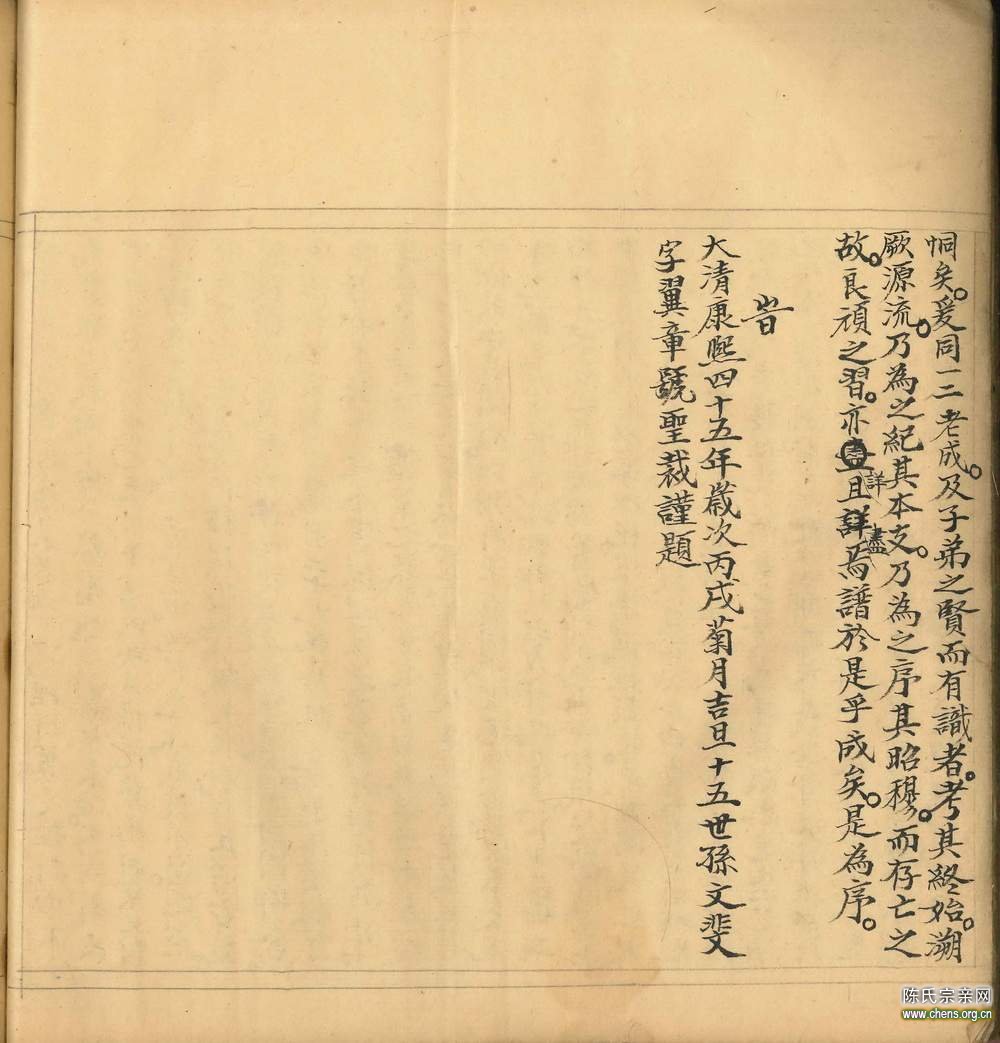 恫矣。爰同一二老成。及子弟之賢而有識者。考其終始。溯
厥源流。乃為之紀其本支。乃為之序其昭穆。而存亡之
詳盡
故。良頑之習。亦盡且詳焉譜於是乎成矣。是為序。
旹
大清康熙四十五年歲次丙戌菊月吉旦十五世孫文斐
字翼章號聖裁謹題
陈氏宗亲网
www.chens.org.cn